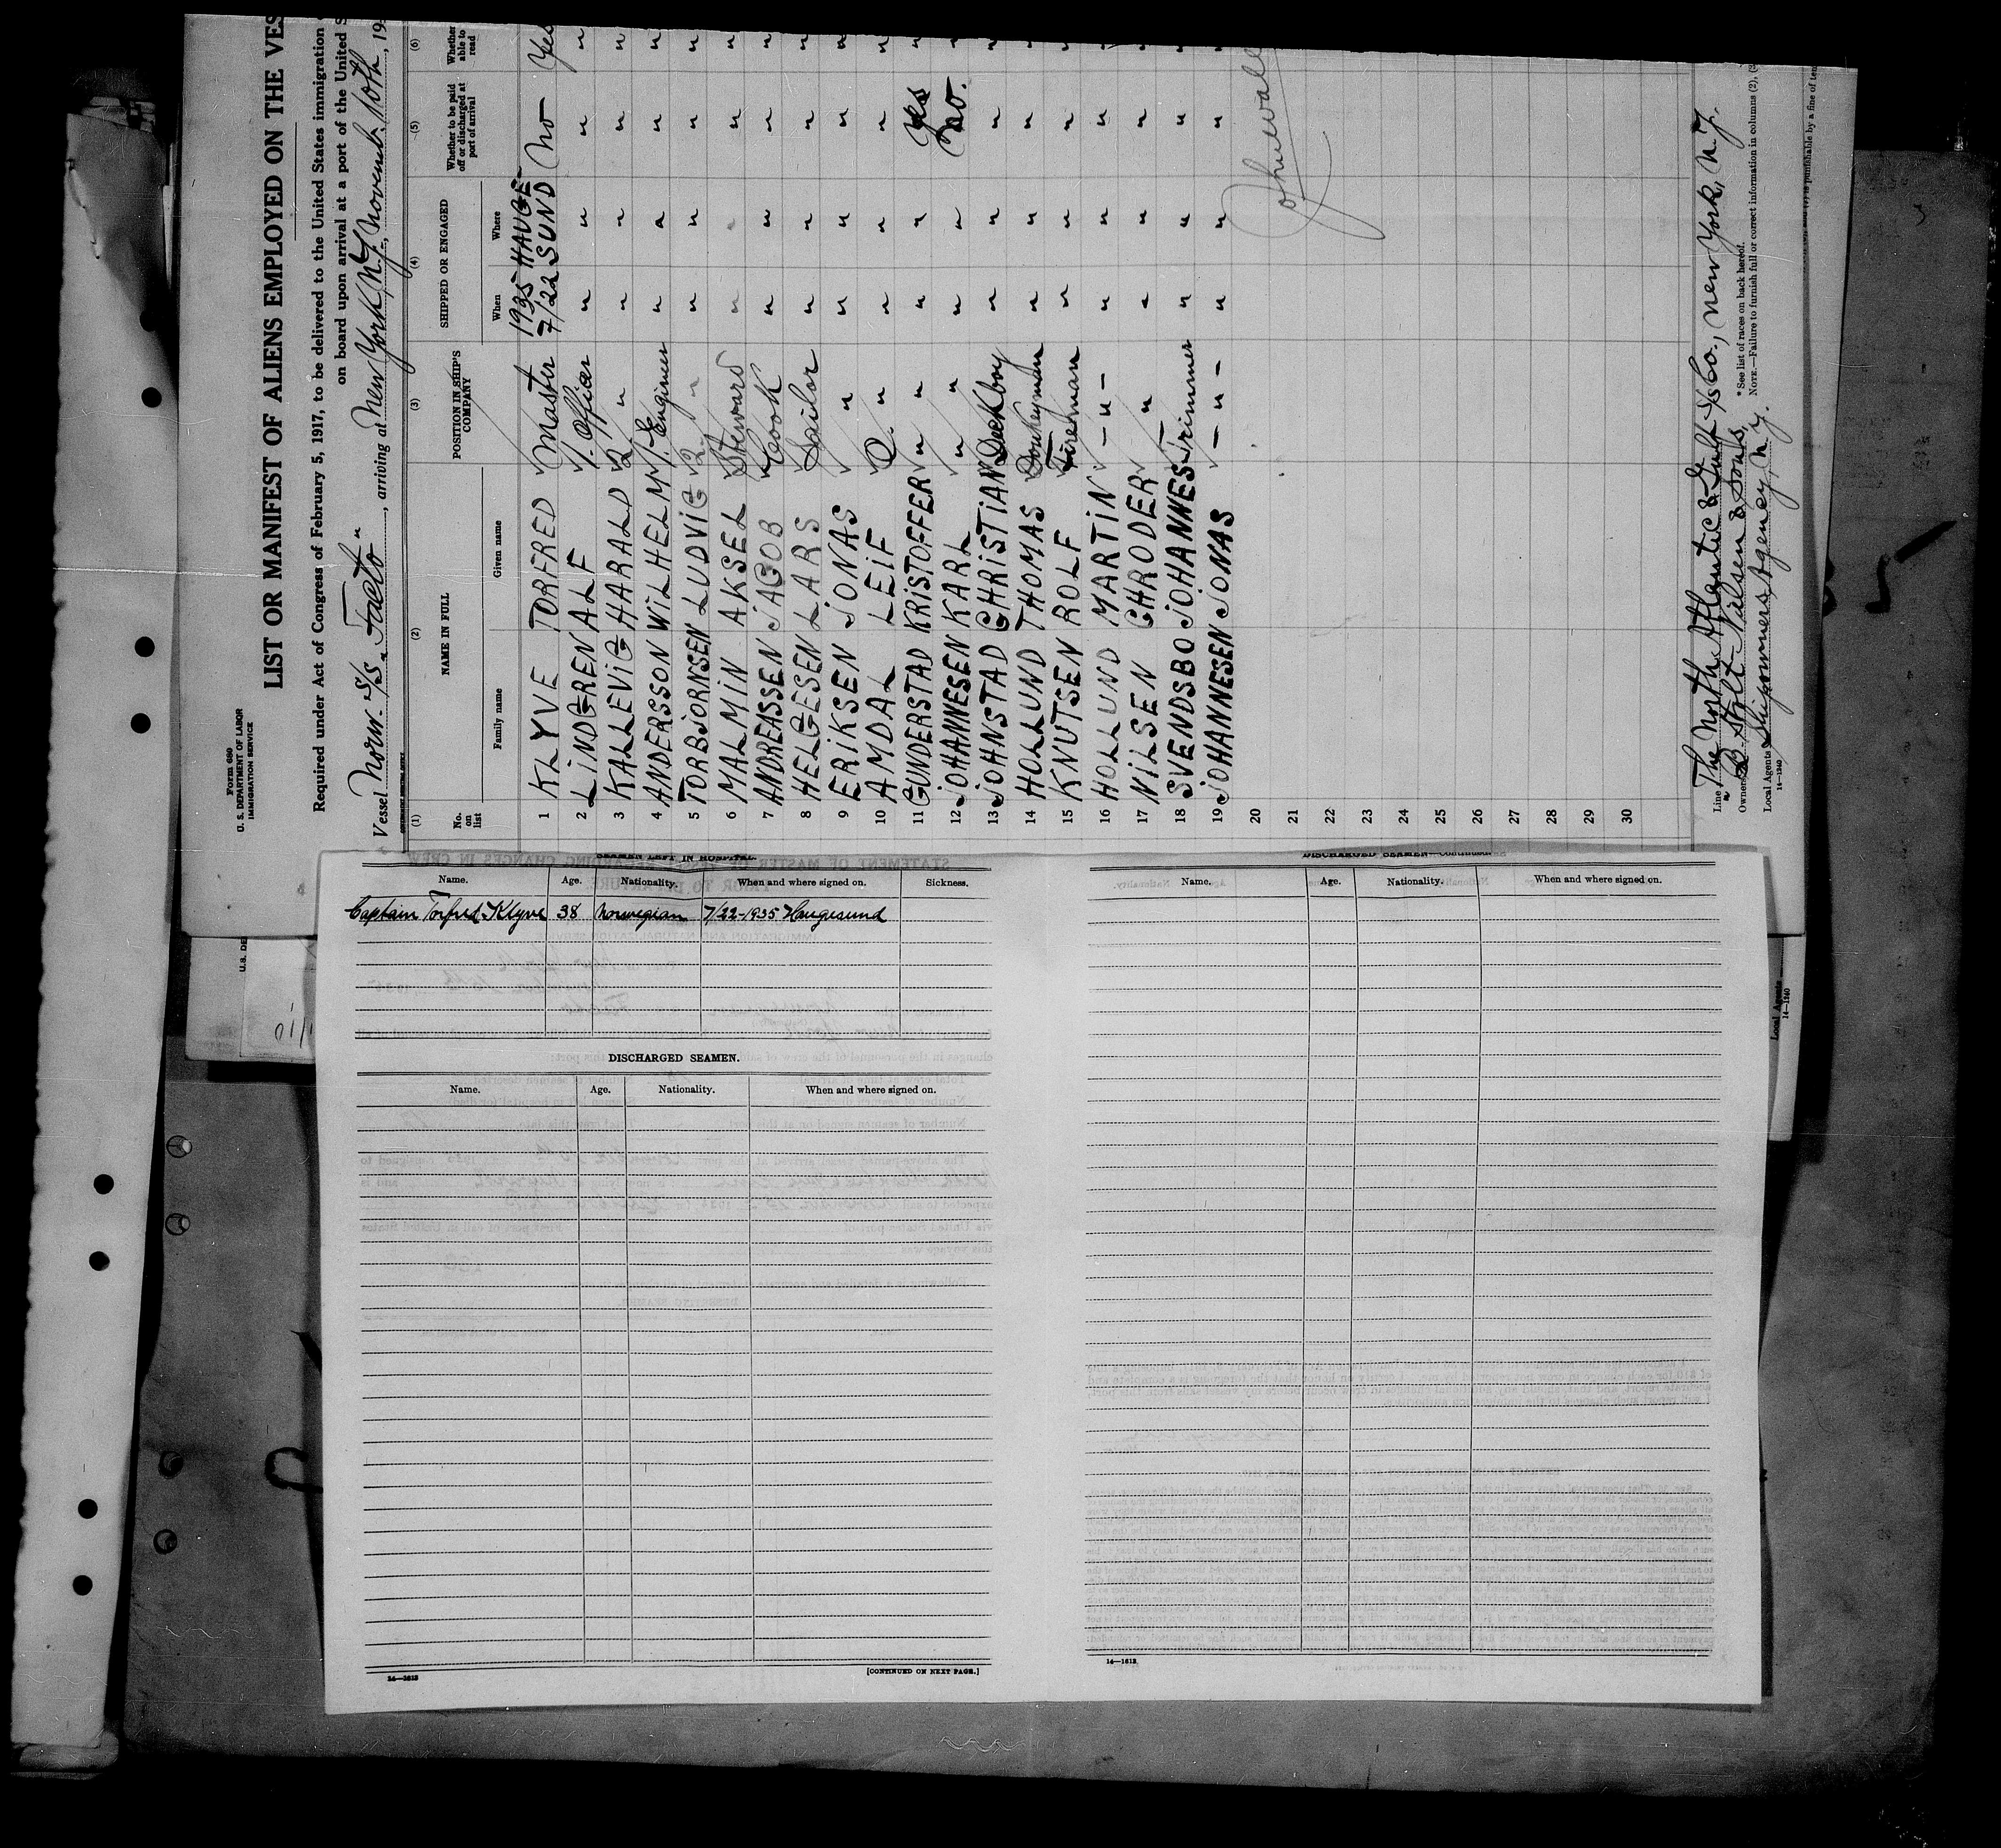 Form 680
U. S. DEPARTMENT OF LABOR
IMMIGRATION SERVICE
LIST OR MANIFEST OF ALIENS EMPLOYED ON THE VES
Required under Act of Congress of February 5, 1917, to be delivered to the United States immigration
on board upon arrival at a port of the United S
Vessel Norw. S/S. "Facto", arriving at New York N.Y., Novemb. 10th, 19
(1) (2) (3) (4) (5) (6)
No. on list
NAME IN FULL
Family name Given name
POSITION IN SHIP'S COMPANY
SHIPPED OR ENGAGED
When Where
Whether to be paid off or discharged at port of arrival
Whether able to read
1 KLYVE TORFRED Master 1935 7/22 HAUGE-SUND No Yes
2 LINDGREN ALF 1. Officer " " " "
3 KALLEVIG HARALD 2 " " " " "
4 ANDERSSON WILHELM 1. Enginer " " " "
5 TORBJORNSEN LUDVIG 2. " " " " "
6 MALMIN AKSEL Steward " " " "
7 ANDREASSEN JACOB Cook " " " "
8 HELGESEN LARS Sailor " " " "
9 ERIKSEN JONAS " " " " "
10 AMDAL LEIF O. " " " " "
11 GUNDERSTAD KRISTOFFER " " " " Yes "
12 JOHANNESEN KARL " " " " No. "
13 JOHNSTAD CHRISTIAN Deckboy " " " "
14 HOLLUND THOMAS Donkeyman " " " "
15 KNUTSEN ROLF Fireman " " " "
16 HOLLUND MARTIN - " - " " " "
17 NILSEN CHRODER " " " " "
18 SVENDSBO JOHANNES Trimmer " " " "
19 JOHANNESEN JONAS - " - " " " "
20
21
22
23
24
25
26
27
28
29
30
Line The North Atlantic & Gulf S/S Co., New York, N.Y.
Owners B. Stolt-Nielsen & Sons,
Local Agents Shipowners Agency N.Y.
14—1240
* See list of races on back hereof.
NOTE.—Failure to furnish full or correct information in columns (2), (3
is punishable by a fine of ten
SEAMEN LEFT IN HOSPITAL.
Name. Age. Nationality. When and where signed on. Sickness.
Captain Torfred Klyve 38 Norwegian 7/22-1935 Haugesund
DISCHARGED SEAMEN.
Name. Age. Nationality. When and where signed on.
14—1613
[CONTINUED ON NEXT PAGE.]
DISCHARGED SEAMEN—Continued
Name. Age. Nationality. When and where signed on.
14—1613
U.S. DE
Local Agents
14—1240